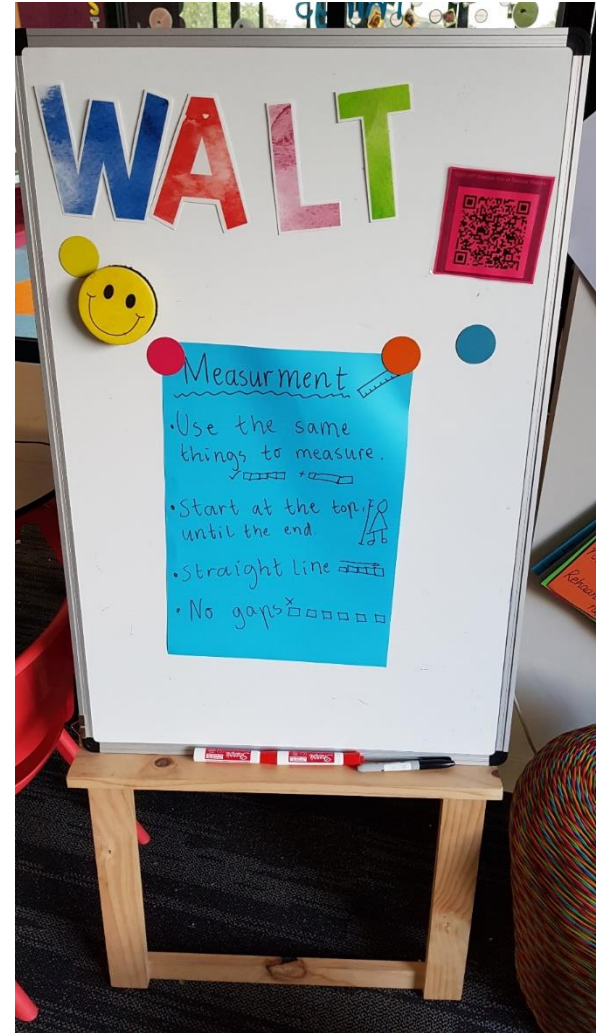 WALT
Measurment
• Use the same
things to measure.
• Start at the top.
until the end.
• Straight line
• No gaps
Sharpie
Sharpie